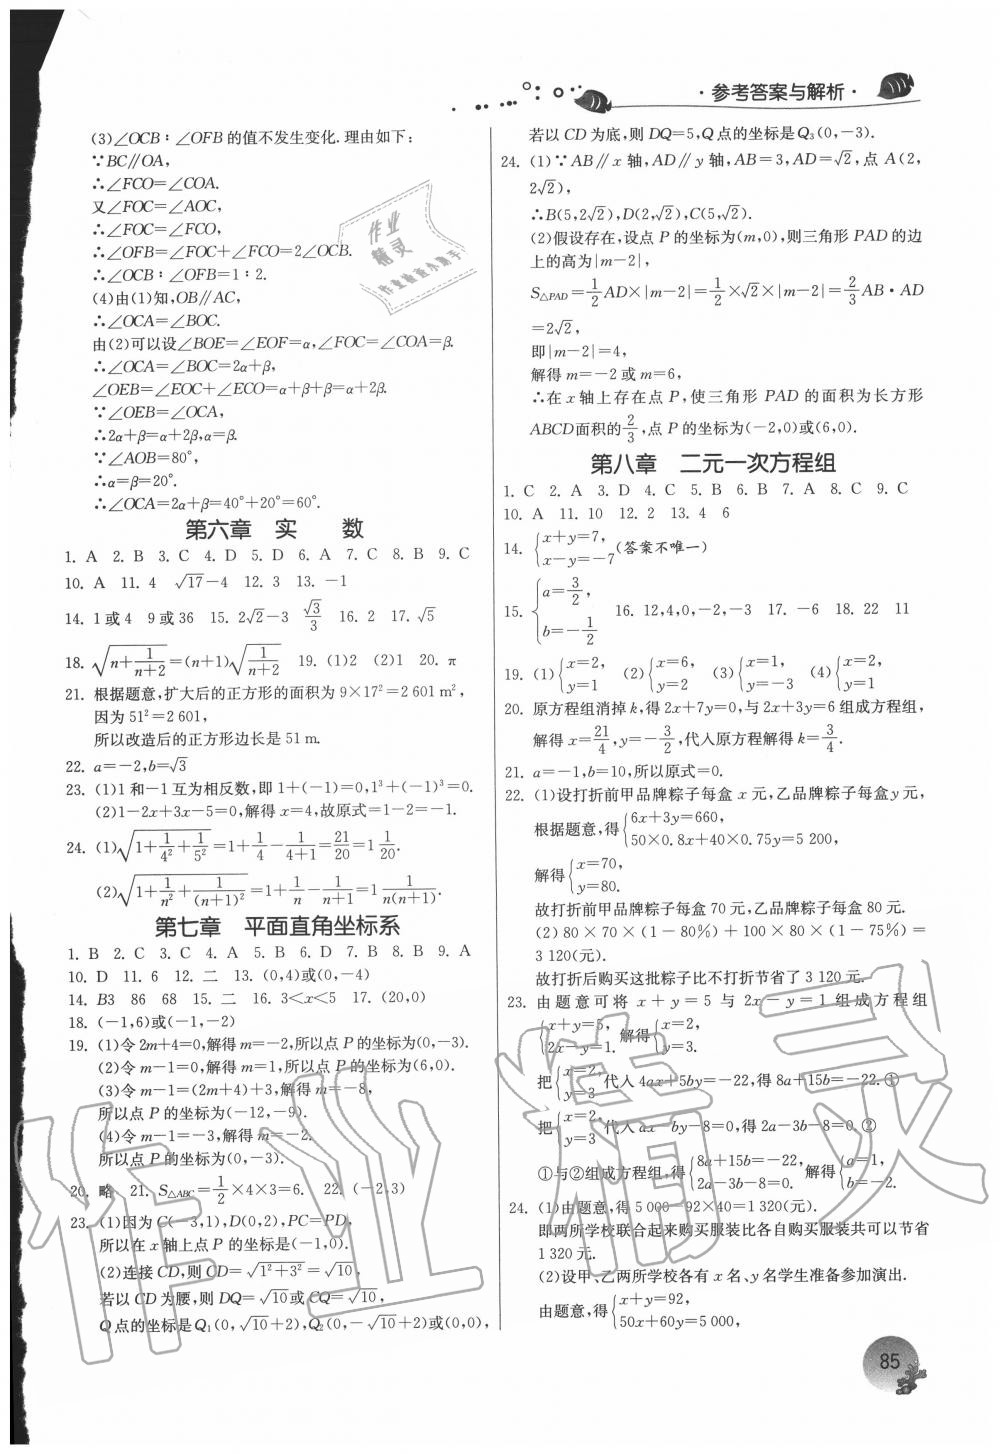 ·参考答案与解析·
(3)∠OCB∶∠OFB的值不发生变化.理由如下:
∵BC∥OA,
∴∠FCO=∠COA.
又∠FOC=∠AOC,
∴∠FOC=∠FCO,
∴∠OFB=∠FOC+∠FCO=2∠OCB.
∴∠OCB∶∠OFB=1∶2.
(4)由(1)知,OB∥AC,
∴∠OCA=∠BOC.
由(2)可以设∠BOE=∠EOF=α,∠FOC=∠COA=β.
∴∠OCA=∠BOC=2α+β,
∠OEB=∠EOC+∠ECO=α+β+β=α+2β.
∵∠OEB=∠OCA,
∴2α+β=α+2β,α=β.
∵∠AOB=80°,
∴α=β=20°.
∴∠OCA=2α+β=40°+20°=60°.
第六章 实 数
1. A 2. B 3. C 4. D 5. D 6. A 7. C 8. B 9. C
10. A 11. 4 √17-4 12. 3 13. -1
14. 1或4 9或36 15. 2√2-3 √3/3 16. 2 17. √5
18. √(n+1/(n+2))=(n+1)√(1/(n+2)) 19. (1)2 (2)1 20. π
21. 根据题意,扩大后的正方形的面积为9×17²=2 601 m²,
因为51²=2 601,
所以改造后的正方形边长是51 m.
22. a=-2,b=√3
23. (1)1和-1互为相反数,即1+(-1)=0,1³+(-1)³=0.
(2)1-2x+3x-5=0,解得x=4,故原式=1-2=-1.
24. (1)√(1+1/4²+1/5²)=1+1/4-1/(4+1)=21/20=1 1/20.
(2)√(1+1/n²+1/(n+1)²)=1+1/n-1/(n+1)=1 1/(n(n+1)).
第七章 平面直角坐标系
1. B 2. C 3. C 4. A 5. B 6. D 7. B 8. B 9. A
10. D 11. 6 12. 二 13. (0,4)或(0,-4)
14. B3 86 68 15. 二 16. 3<x<5 17. (20,0)
18. (-1,6)或(-1,-2)
19. (1)令2m+4=0,解得m=-2,所以点P的坐标为(0,-3).
(2)令m-1=0,解得m=1,所以点P的坐标为(6,0).
(3)令m-1=(2m+4)+3,解得m=-8,
所以点P的坐标为(-12,-9).
(4)令m-1=-3,解得m=-2.
所以点P的坐标为(0,-3).
20. 略 21. S△ABC=1/2×4×3=6. 22. (-2,3)
23. (1)因为C(-3,1),D(0,2),PC=PD,
所以在x轴上点P的坐标是(-1,0).
(2)连接CD,则CD=√(1²+3²)=√10,
若以CD为腰,则DQ=√10或CQ=√10,
Q点的坐标是Q₁(0,√10+2),Q₂(0,-√10+2)或(0,0),
若以CD为底,则DQ=5,Q点的坐标是Q₃(0,-3).
24. (1)∵AB∥x轴,AD∥y轴,AB=3,AD=√2,点A(2,
2√2),
∴B(5,2√2),D(2,√2),C(5,√2).
(2)假设存在,设点P的坐标为(m,0),则三角形PAD的边
上的高为|m-2|,
S△PAD=1/2AD×|m-2|=1/2×√2×|m-2|=2/3AB·AD
=2√2,
即|m-2|=4,
解得m=-2或m=6,
∴在x轴上存在点P,使三角形PAD的面积为长方形
ABCD面积的2/3,点P的坐标为(-2,0)或(6,0).
第八章 二元一次方程组
1. C 2. A 3. D 4. C 5. B 6. B 7. A 8. C 9. C
10. A 11. 10 12. 2 13. 4 6
14. {x+y=7, x-y=-7 (答案不唯一)
15. {a=3/2, b=-1/2 16. 12,4,0,-2,-3 17. -6 18. 22 11
19. (1){x=2, y=1 (2){x=6, y=2 (3){x=1, y=-3 (4){x=2, y=1
20. 原方程组消掉k,得2x+7y=0,与2x+3y=6组成方程组,
解得x=21/4,y=-3/2,代入原方程解得k=3/4.
21. a=-1,b=10,所以原式=0.
22. (1)设打折前甲品牌粽子每盒x元,乙品牌粽子每盒y元,
根据题意,得{6x+3y=660, 50×0.8x+40×0.75y=5 200,
解得{x=70, y=80.
故打折前甲品牌粽子每盒70元,乙品牌粽子每盒80元.
(2)80×70×(1-80%)+100×80×(1-75%)=
3 120(元).
故打折后购买这批粽子比不打折节省了3 120元.
23. 由题意可将x+y=5与2x-y=1组成方程组
{x+y=5, 2x-y=1. 解得{x=2, y=3.
把{x=2, y=3代入4ax+5by=-22,得8a+15b=-22.①
把{x=2, y=3代入ax-by-8=0,得2a-3b-8=0.②
①与②组成方程组,得{8a+15b=-22, 2a-3b-8=0. 解得{a=1, b=-2.
24. (1)由题意,得5 000-92×40=1 320(元).
即两所学校联合起来购买服装比各自购买服装共可以节省
1 320元.
(2)设甲、乙两所学校各有x名、y名学生准备参加演出.
由题意,得{x+y=92, 50x+60y=5 000,
85
作业
精灵
作业检查小助手
作业精灵